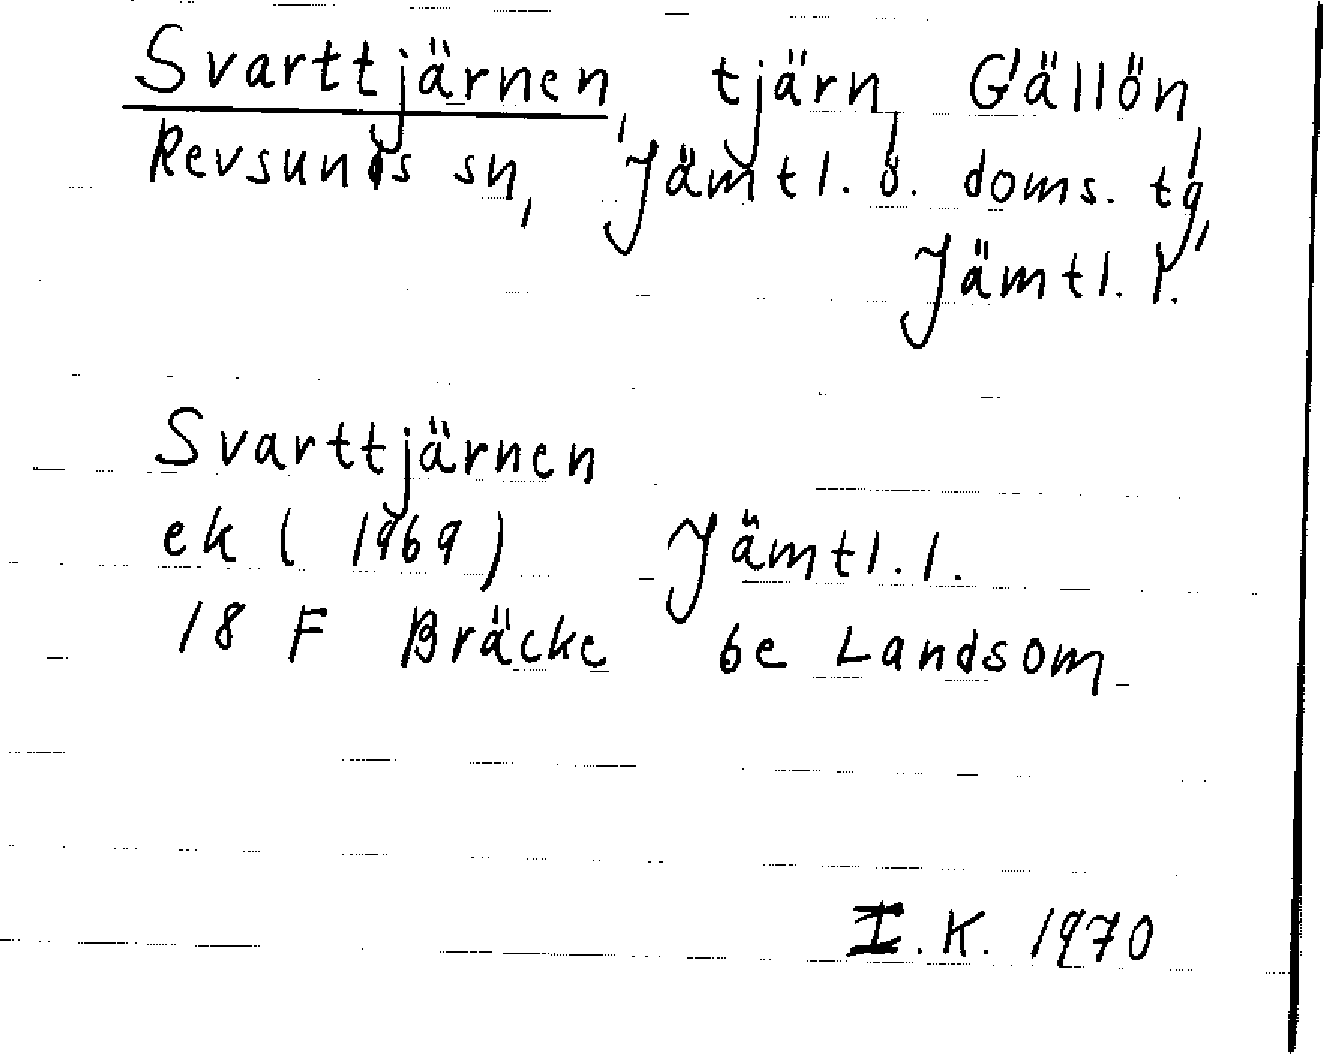 Svarttjärnen, tjärn, Gällön,
Revsunds sn, Jämtl. ö. doms. tg,
Jämtl. l.
Svarttjärnen
ek ( 1969) Jämtl. l.
18 F Bräcke 6e Landsom
I.K. 1970